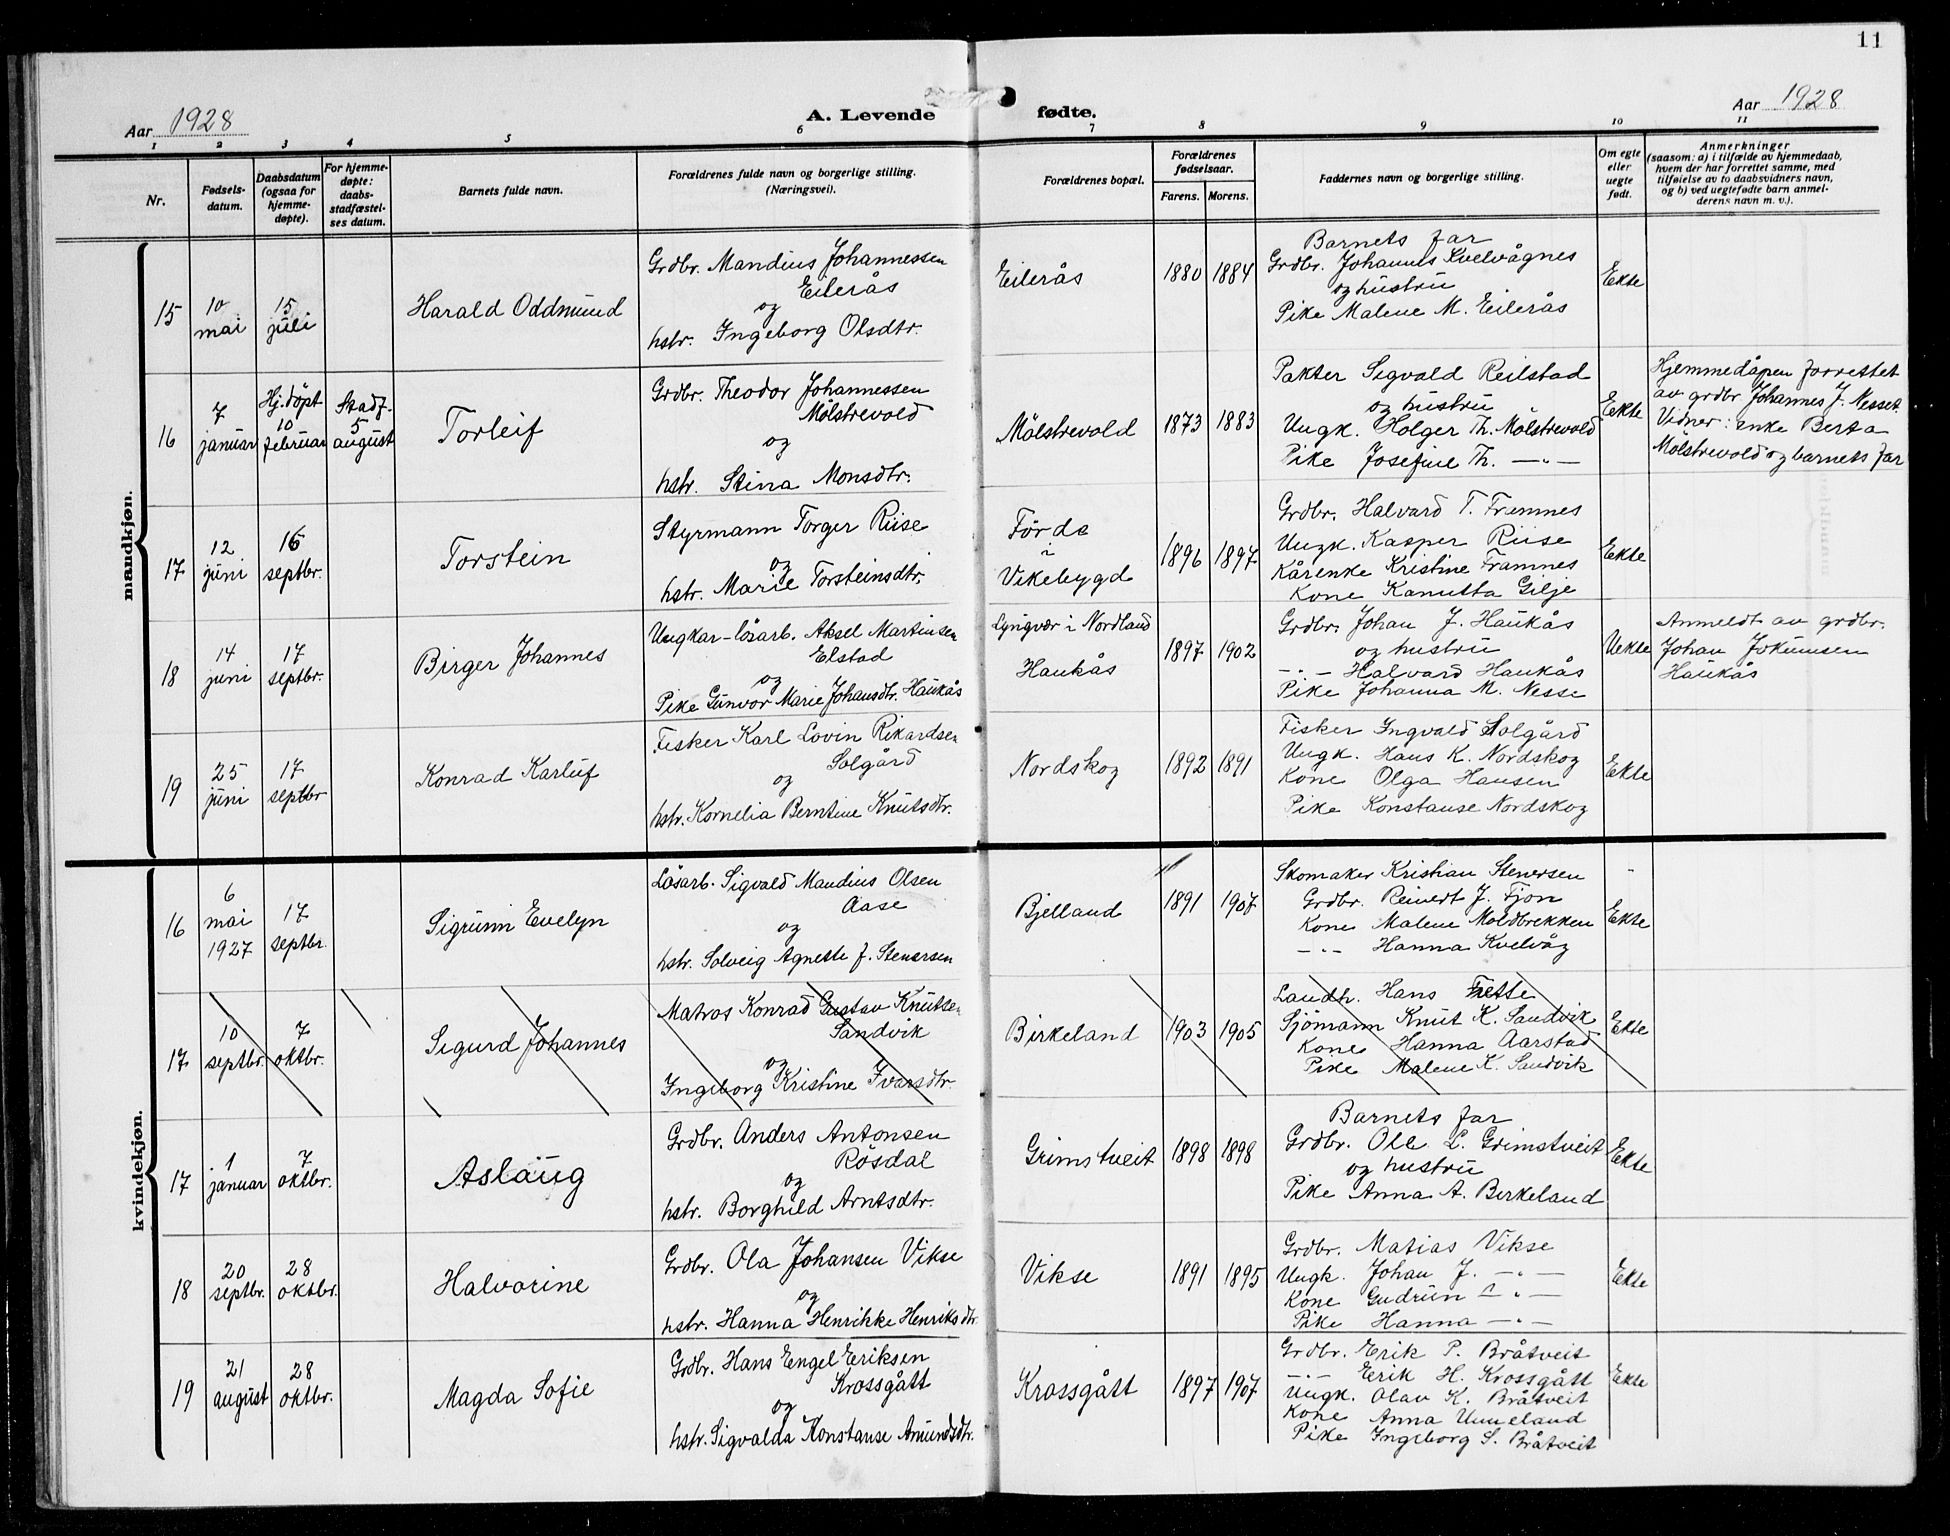 11
Aar 1928
A. Levende fødte.
Aar 1928
1 2 3 4 5 6 7 8 9 10 11
Nr.
Fødsels-
datum.
Daabsdatum
(ogsaa for
hjemme-
døpte).
For hjemme-
døpte:
daabs-
stadfæstel-
ses datum.
Barnets fulde navn.
Forældrenes fulde navn og borgerlige stilling.
(Næringsvei).
Forældrenes bopæl.
Forældrenes
fødselsaar.
Farens. Morens.
Faddernes navn og borgerlige stilling.
Om egte
eller
uegte
født.
Anmerkninger
(saasom: a) i tilfælde av hjemmedaab,
hvem der har forrettet samme, med
tilføielse av to daabsvidners navn,
og b) ved uegtefødte barn anmel-
derens navn m. v.).
mandkjøn.
15
10
mai
15
juli
Harald Oddmund
Grdbr. Mandius Johannessen
Eilerås
og
hstr. Ingeborg Olsdtr.
Eilerås
1880 1884
Barnets far
Grdbr. Johannes Kvelvågnes
og hustru
Pike Malene M. Eilerås
Ekte
16
7
januar
Hj.døpt
10
februar
Stadf.
5
august
Torleif
Grdbr. Theodor Johannessen
Mølstrevold
og
hstr. Stina Monsdtr.
Mølstrevold
1873 1883
Pakter Sigvald Reilstad
og hustru
Ungk. Holger Th. Mølstrevold
Pike Josefine Th. —„—
Ekte
Hjemmedåpen forrettet
av grdbr. Johannes J. Nesset.
Vidner: enke Berta
Mølstrevold og barnets far
17
12
juni
16
septbr.
Torstein
Styrmann Torger Riise
og
hstr. Marie Torsteinsdtr.
Førde
i
Vikebygd
1896 1897
Grdbr. Halvard T. Framnes
Ungk. Kasper Riise
Kårenke Kristine Framnes
Kone Kanutta Gilje
Ekte
18
14
juni
17
septbr.
Birger Johannes
Ungkar-løsarb. Aksel Martinsen
Elstad
og
Pike Gunvor Marie Johansdtr. Haukås
Lyngvær i Nordland
Haukås
1897 1902
Grdbr. Johan J. Haukås
og hustru
—„— Halvard Haukås
Pike Johanna M. Nesse
Uekte
Anmeldt av grdbr.
Johan Jokumsen
Haukås
19
25
juni
17
septbr
Konrad Karluf
Fisker Karl Lovin Rikardsen
Solgård
og
hstr. Kornelia Berntine Knutsdtr.
Nordskog
1892 1891
Fisker Ingvald Solgård
Ungk. Hans K. Nordskog
Kone Olga Hansen
Pike Konstanse Nordskog
Ekte
kvindekjøn.
16
6
mai
1927
17
septbr.
Sigrunn Evelyn
Løsarb. Sigvald Mandius Olsen
Aase
og
hstr. Solveig Agnette J. Stenersen
Bjelland
1891 1907
Skomaker Kristian Stenersen
Grdbr. Reinert J. Tjon
Kone Malene Moldbrekken
—„— Hanna Kvelvåg
Ekte
17
10
septbr.
7
oktbr.
Sigurd Johannes
Matros Konrad Gustav Knutsen
Sandvik
og
Ingeborg Kristine Ivarsdtr.
Birkeland
1903 1905
Landh. Hans Fette
Sjømann Knut K. Sandvik
Kone Hanna Aarstad
Pike Malene K. Sandvik
Ekte
17
1
januar
7
oktbr.
Aslaug
Grdbr. Anders Antonsen
Røsdal
og
hstr. Borghild Arntsdtr.
Grimstveit
1898 1898
Barnets far
Grdbr. Ole L. Grimstveit
og hustru
Pike Anna A. Berkeland
Ekte
18
20
septbr.
28
oktbr.
Halvorine
Grdbr. Ola Johansen Vikse
og
hstr. Hanna Henrikke Henriksdtr.
Vikse
1891 1895
Grdbr. Matias Vikse
Ungk. Johan J. —„—
Kone Gudrun —„—
Pike Hanna —„—
Ekte
19
21
august
28
oktbr.
Magda Sofie
Grdbr. Hans Engel Eriksen
Krossgått
og
hstr. Sigvalda Konstanse Amundsdtr.
Krossgått
1897 1907
Grdbr. Erik P. Bråtveit
—„— Erik H. Krossgått
Ungk. Olav K. Bråtveit
Kone Anna Ummeland
Pike Ingeborg S. Bråtveit
Ekte